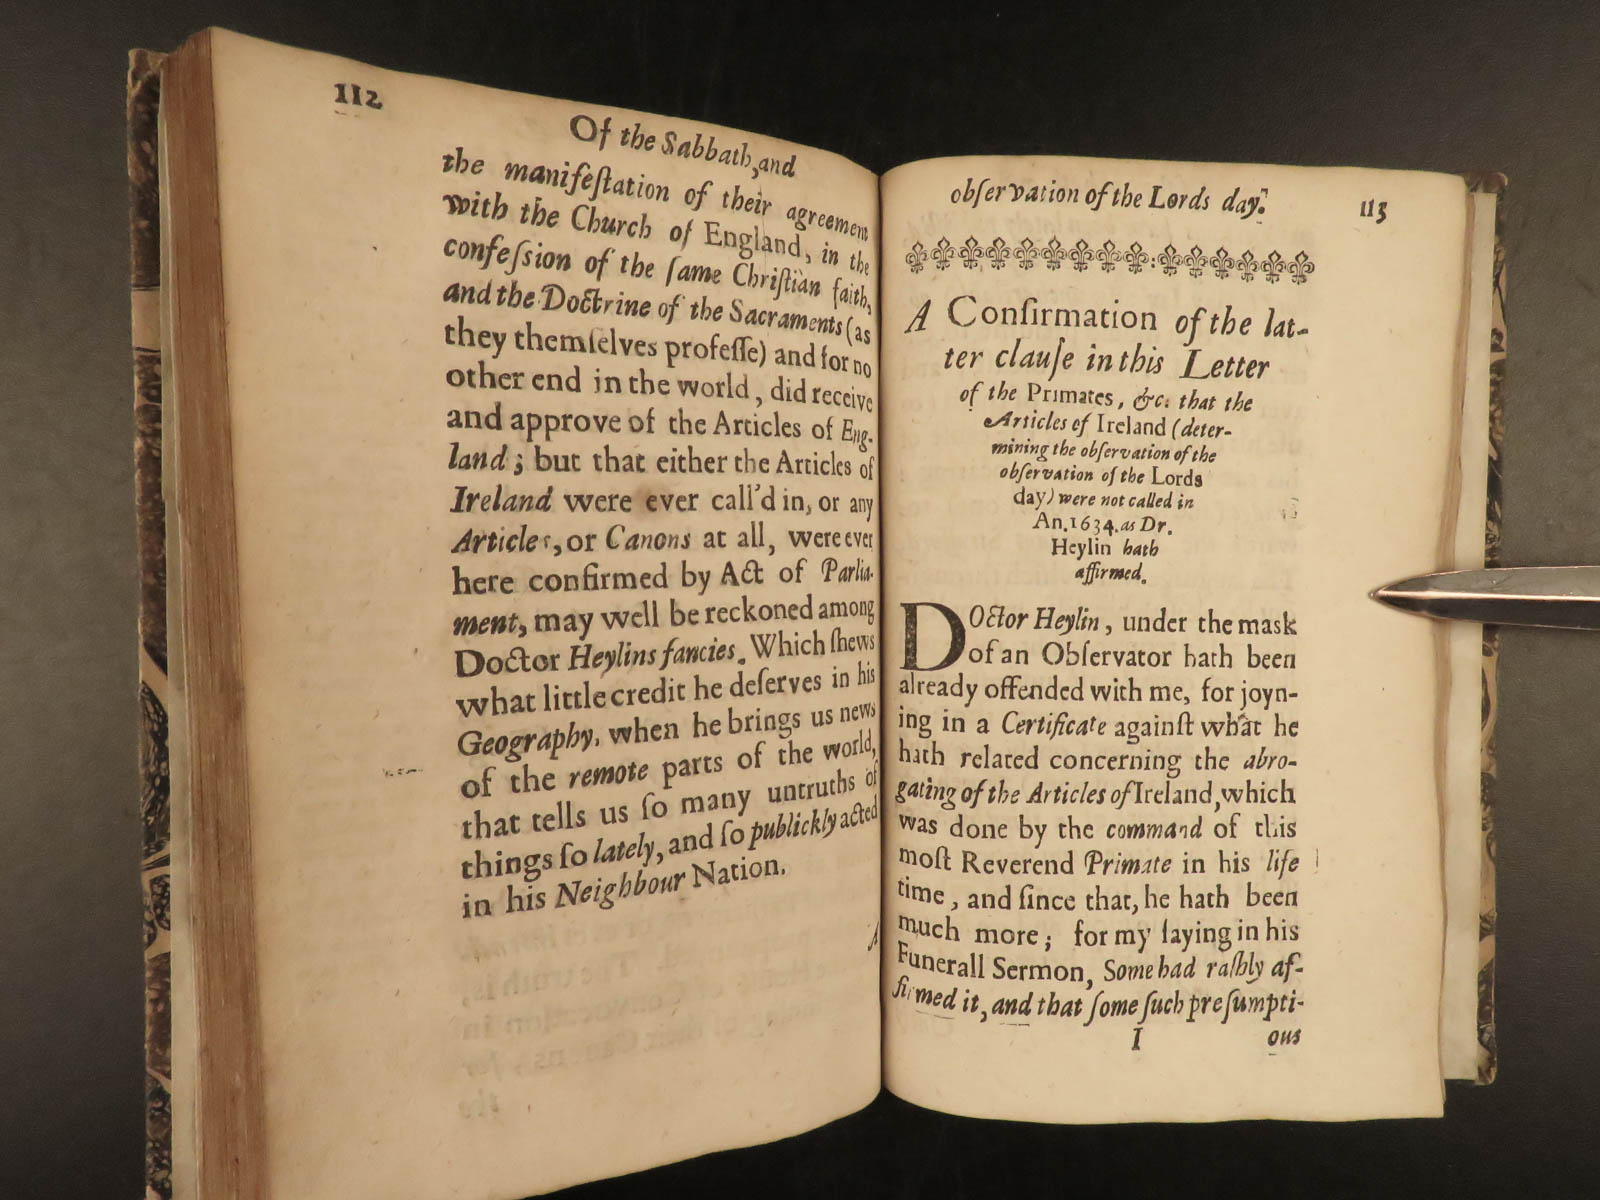 112
Of the Sabbath, and
the manifeſtation of their agreement
with the Church of England, in the
confeſsion of the ſame Chriſtian faith,
and the Doctrine of the Sacraments (as
they themſelves profeſſe) and for no
other end in the world, did receive
and approve of the Articles of Eng-
land; but that either the Articles of
Ireland were ever call'd in, or any
Articles, or Canons at all, were ever
here confirmed by Act of Parlia-
ment, may well be reckoned among
Doctor Heylins fancies. Which ſhews
what little credit he deſerves in his
Geography, when he brings us news
of the remote parts of the world,
that tells us ſo many untruths of
things ſo lately, and ſo publickly acted
in his Neighbour Nation.
A
obſervation of the Lords day. 113
A Confirmation of the lat-
ter clauſe in this Letter
of the Primates, &c. that the
Articles of Ireland (deter-
mining the obſervation of the
obſervation of the Lords
day) were not called in
An. 1634. as Dr.
Heylin hath
affirmed.
DOctor Heylin, under the mask
of an Obſervator hath been
already offended with me, for joyn-
ing in a Certificate againſt what he
hath related concerning the abro-
gating of the Articles of Ireland, which
was done by the command of this
moſt Reverend Primate in his life
time, and ſince that, he hath been
much more; for my ſaying in his
Funerall Sermon, Some had raſhly af-
firmed it, and that ſome ſuch preſumpti-
I ous